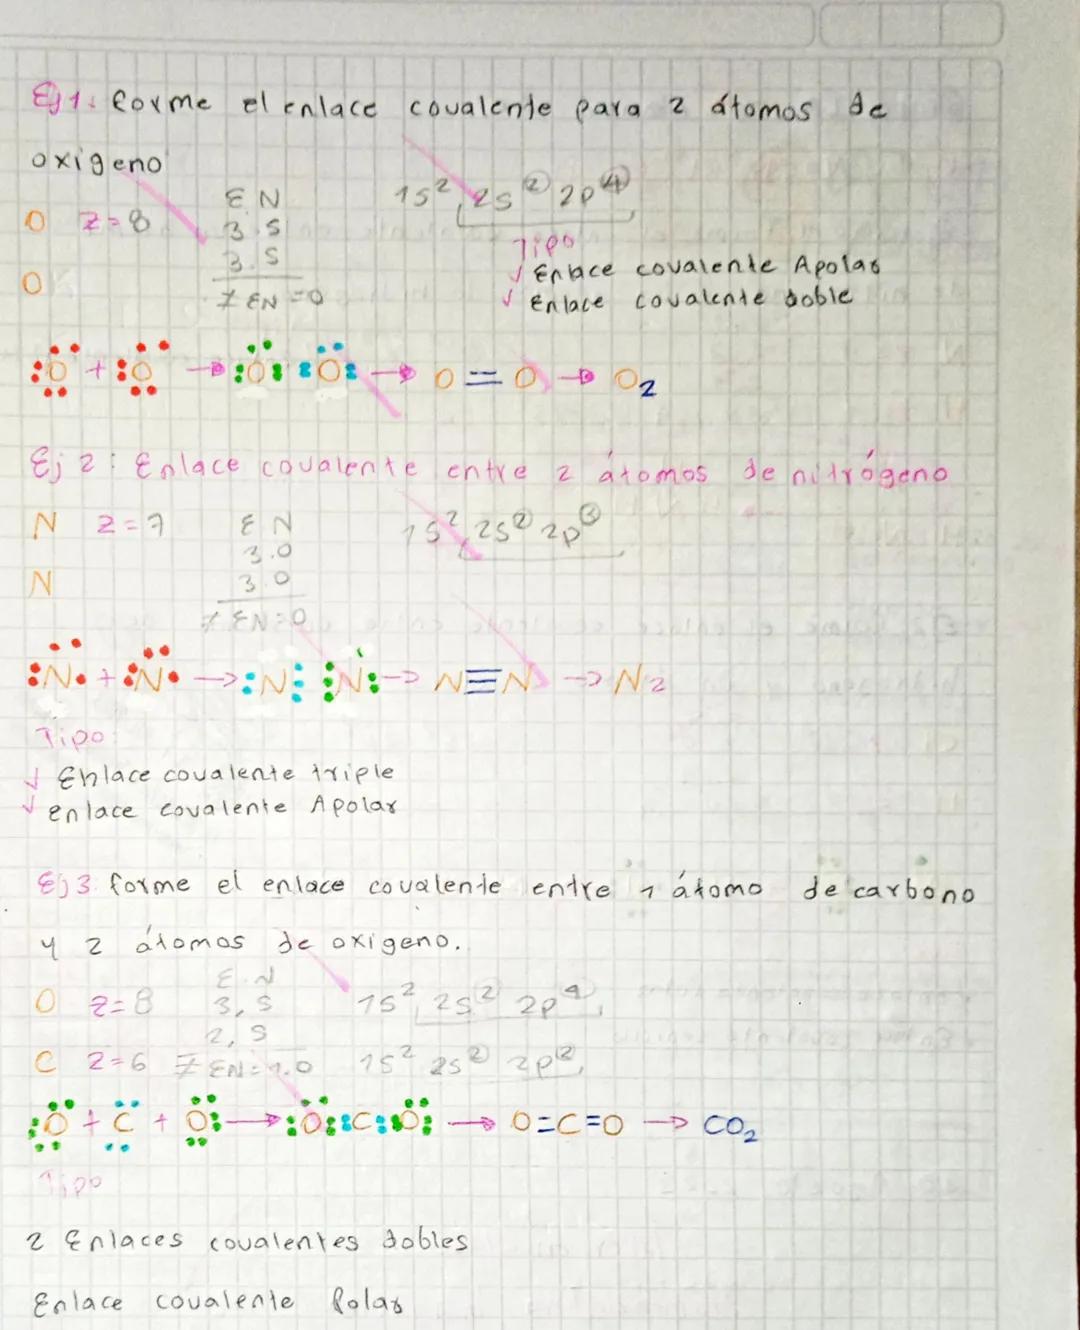 Ej1: forme el enlace covalente para 2 átomos de
oxigeno
O Z=8 E N 1s² 2s② 2p④
3.5 Tipo
3.5 √ Enlace covalente Apolar
O ≠ EN=0 √ Enlace covalente doble
O + O → O O → O=O → O₂
Ej 2: Enlace covalente entre 2 átomos de nitrógeno
N Z=7 E N 1s² 2s② 2p③
3.0
N 3.0
≠ EN=0
N + N → N N → N≡N → N₂
Tipo:
√ Enlace covalente triple
√ enlace covalente Apolar
Ej 3. forme el enlace covalente entre 1 átomo de carbono
y 2 átomos de oxigeno.
E.N
O Z=8 3,5 1s² 2s② 2p④
2,5
C Z=6 ≠ EN=1.0 1s² 2s② 2p②
O + C + O → O C O → O=C=O → CO₂
Tipo
2 Enlaces covalentes dobles
Enlace covalente Polar